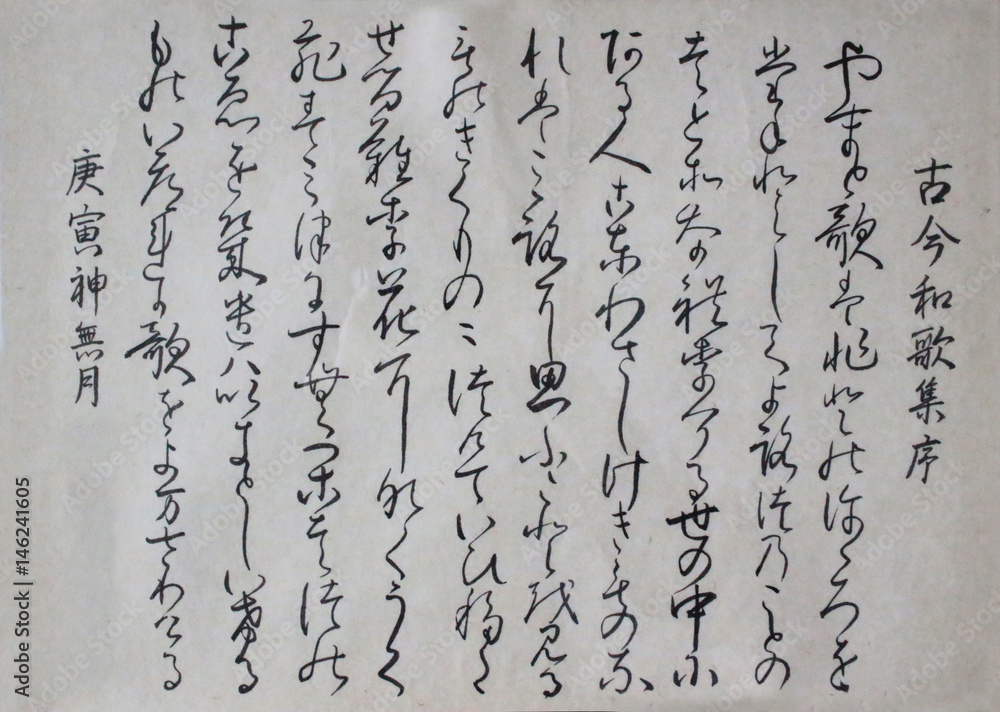 古今和歌集序
やまと歌はひとのこゝろを
たねとしてよろつのことの
はとそなれりける世の中に
ある人ことわさしけきものな
れはこゝろに思ふことを見る
ものきくものにつけていひ
せるなり花になくうく
ひすみつにすむかはつの
こゑをきけはいきとしいける
ものいつれか歌をよまさりける
庚寅神無月
Adobe Stock | #146241605